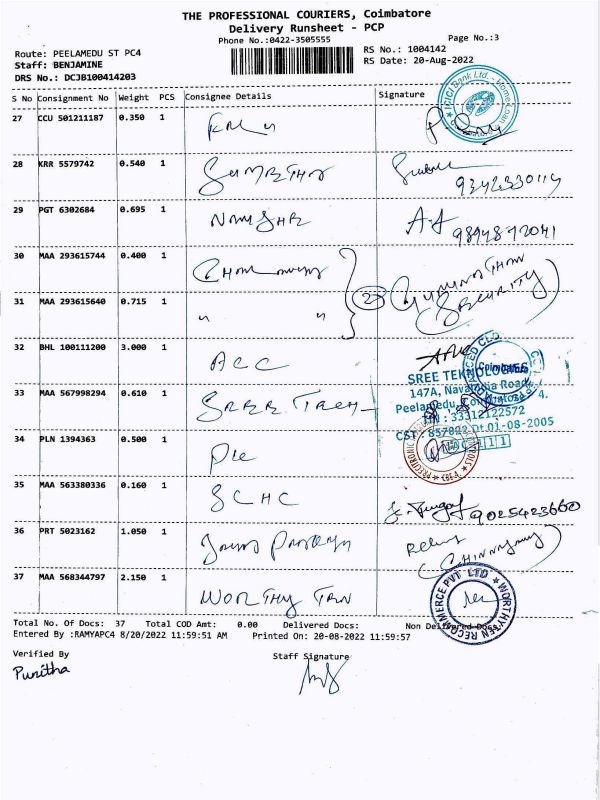 THE PROFESSIONAL COURIERS, Coimbatore
Delivery Runsheet - PCP
Phone No.:0422-3505555
Page No.:3
Route: PEELAMEDU ST PC4
RS No.: 1004142
Staff: BENJAMINE
RS Date: 20-Aug-2022
DRS No.: DCJB100414203
S No Consignment No Weight PCS Consignee Details Signature
27 CCU 501211187 0.350 1
ICICI Bank Ltd. Home Loan
28 KRR 5579742 0.540 1
9342330114
29 PGT 6302684 0.695 1
9894872041
30 MAA 293615744 0.400 1
31 MAA 293615640 0.715 1 " "
2
SECURITY
32 BHL 100111200 3.000 1 ACC
33 MAA 567998294 0.610 1 SREE TECH
SREE TEKNOLOGIES
147A, Navaindia Road,
Peelamedu, Coimbatore - 4.
TIN : 33312122572
CST : 857022 Dt.01-08-2005
Coimbatore
34 PLN 1394363 0.500 1
35 MAA 563380336 0.160 1 SCHC
9025423660
36 PRT 5023162 1.050 1
37 MAA 568344797 2.150 1 WORTHY TEN
WORTHYTEN RECOMMERCE PVT LTD
Total No. Of Docs: 37 Total COD Amt: 0.00 Delivered Docs: Non Delivered Docs:
Entered By :RAMYAPC4 8/20/2022 11:59:51 AM Printed On: 20-08-2022 11:59:57
Verified By Staff Signature
Punitha